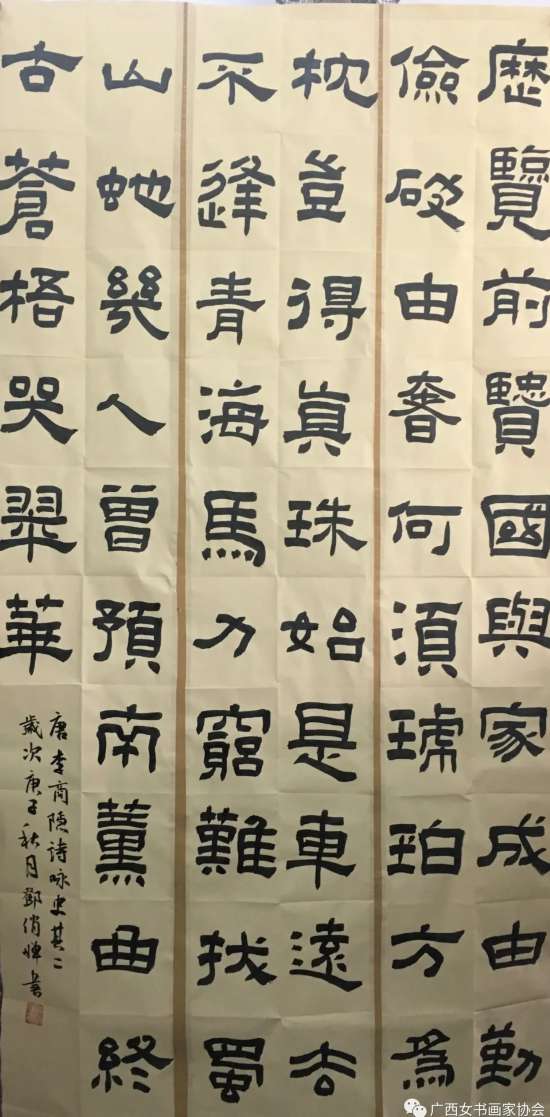 歷覽前賢國與家成由勤
儉破由奢何須琥珀方爲
枕豈得真珠始是車遠去
不逢青海馬力窮難拔蜀
山虵幾人曾預南薰曲終
古蒼梧哭翠華
唐李商隱詩咏史其二
歲次庚子秋月鄧俏書
广西女书画家协会